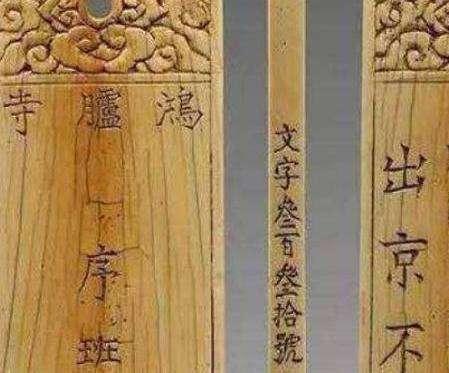 鴻臚寺
序班
文字叁百叁拾號
出京不